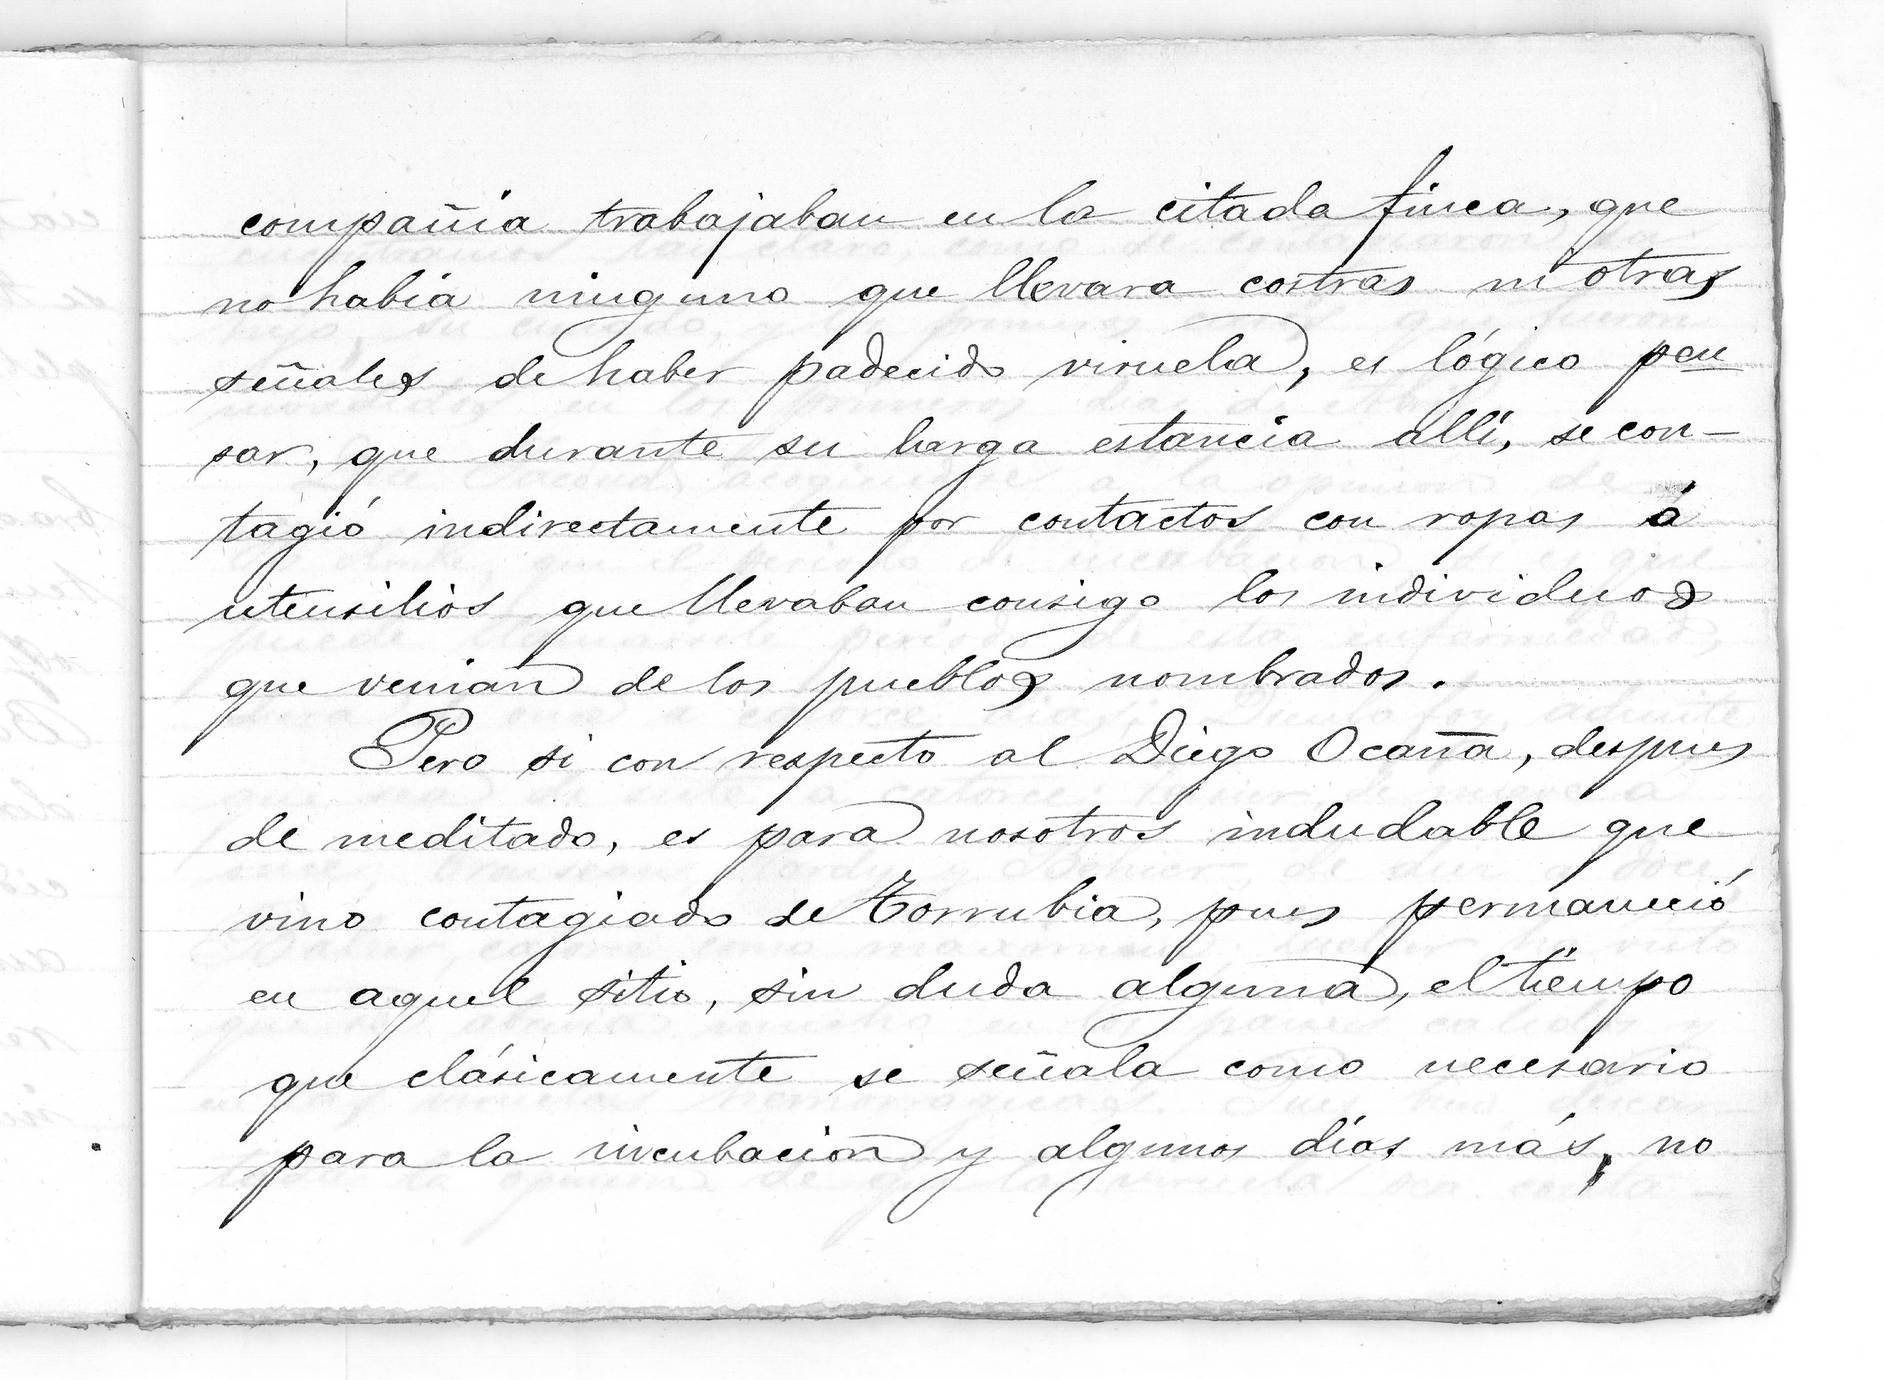 compañia trabajaban en la citada finca, que
no habia ninguno que llevara costras ni otras
señales de haber padecido viruela, es lógico pen
sar, que durante su larga estancia allí, se con-
tagió indirectamente por contactos con ropas ó
utensilios que llevaban consigo los individuos
que venian de los pueblos nombrados.
Pero si con respecto al Diego Ocaña, despues
de meditado, es para nosotros indudable que
vino contagiado de Torrubia, pues permaneció
en aquel sitio, sin duda alguna, el tiempo
que clásicamente se señala como necesario
para la incubacion y algunos días más, no